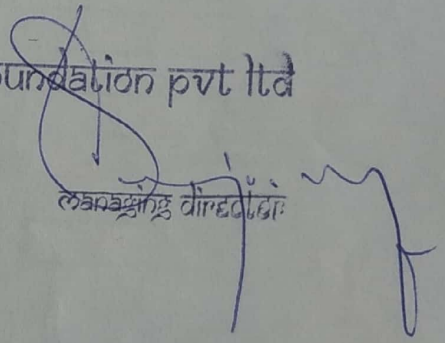 undation pvt ltd
managing director